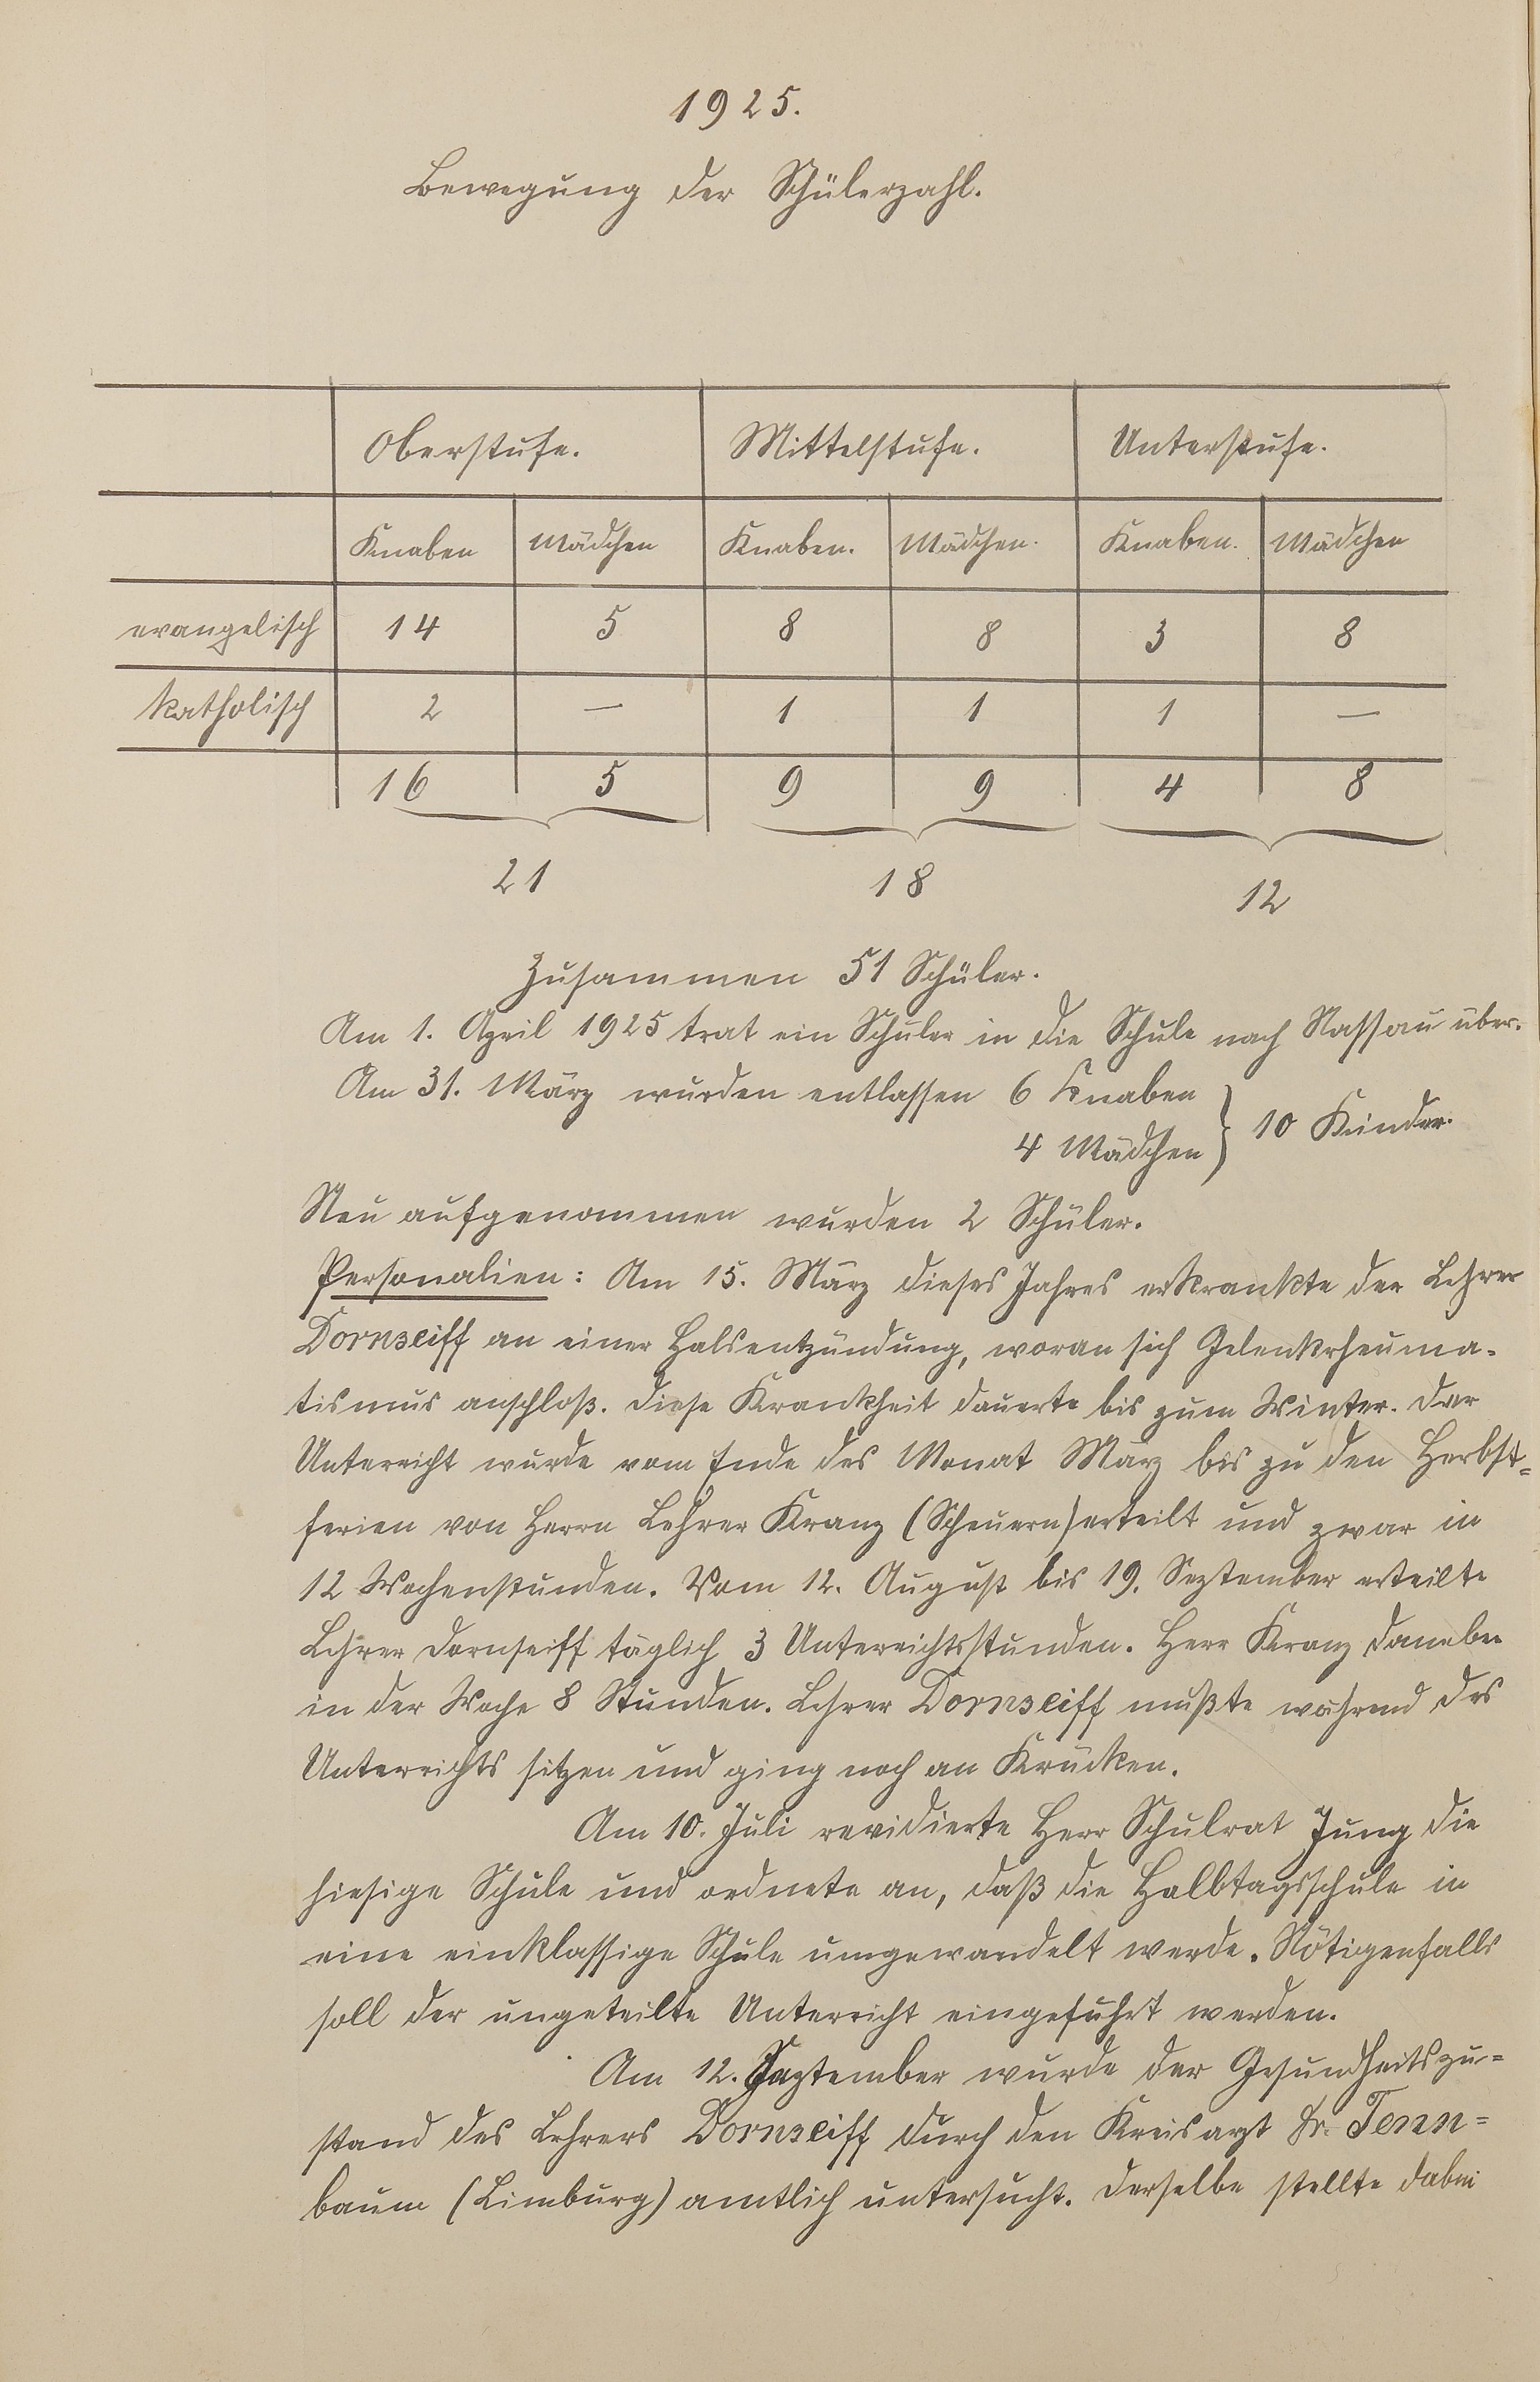 1925.
Bewegung der Schülerzahl.
Oberstufe. Mittelstufe. Unterstufe.
Knaben Mädchen Knaben. Mädchen. Knaben. Mädchen
evangelisch 14 5 8 8 3 8
katholisch 2 — 1 1 1 —
16 5 9 9 4 8
21 18 12
Zusammen 51 Schüler.
Am 1. April 1925 trat ein Schüler in die Schule nach Nassau über.
Am 31. März wurden entlassen 6 Knaben
4 Mädchen } 10 Kinder.
Neu aufgenommen wurden 2 Schüler.
Personalien: Am 15. März dieses Jahres erkrankte der Lehrer
Dornseiff an einer Halsentzündung, woran sich Gelenkrheuma-
tismus anschloß. Diese Krankheit dauerte bis zum Winter. Der
Unterricht wurde vom Ende des Monat März bis zu den Herbst=
ferien von Herrn Lehrer Kranz (Scheuern) erteilt und zwar in
12 Wochenstunden. Vom 12. August bis 19. September erteilte
Lehrer Dornseiff täglich 3 Unterrichtsstunden. Herr Kranz daneben
in der Woche 8 Stunden. Lehrer Dornseiff mußte während des
Unterrichts sitzen und ging noch an Krücken.
Am 10. Juli revidierte Herr Schulrat Jung die
hiesige Schule und ordnete an, daß die Halbtagsschule in
eine einklassige Schule umgewandelt werde. Nötigenfalls
soll der ungeteilte Unterricht eingeführt werden.
Am 12. September wurde der Gesundheitszu=
stand des Lehrers Dornseiff durch den Kreisarzt Dr. Tenn=
baum (Limburg) amtlich untersucht. Derselbe stellte dabei